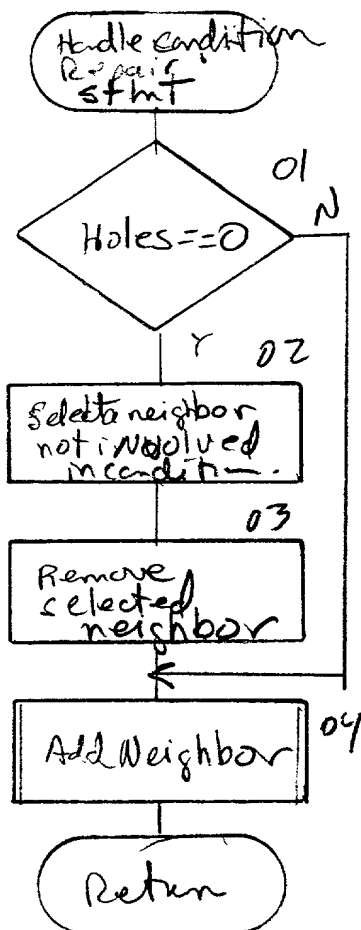 Handle condition
Repair
stmt
01
N
Holes==0
Y
02
Select a neighbor
not involved
in condition.
03
Remove
selected
neighbor
Add Neighbor
04
Return